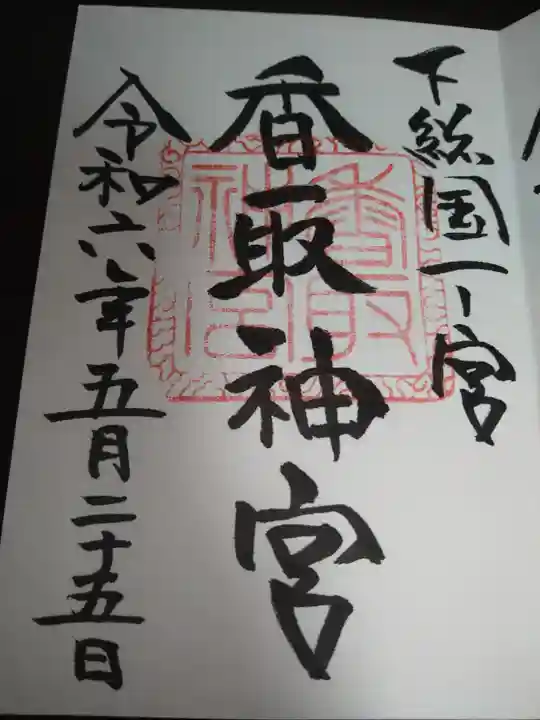 下総国一ノ宮
香取神宮
香取神宮
令和六年五月二十五日